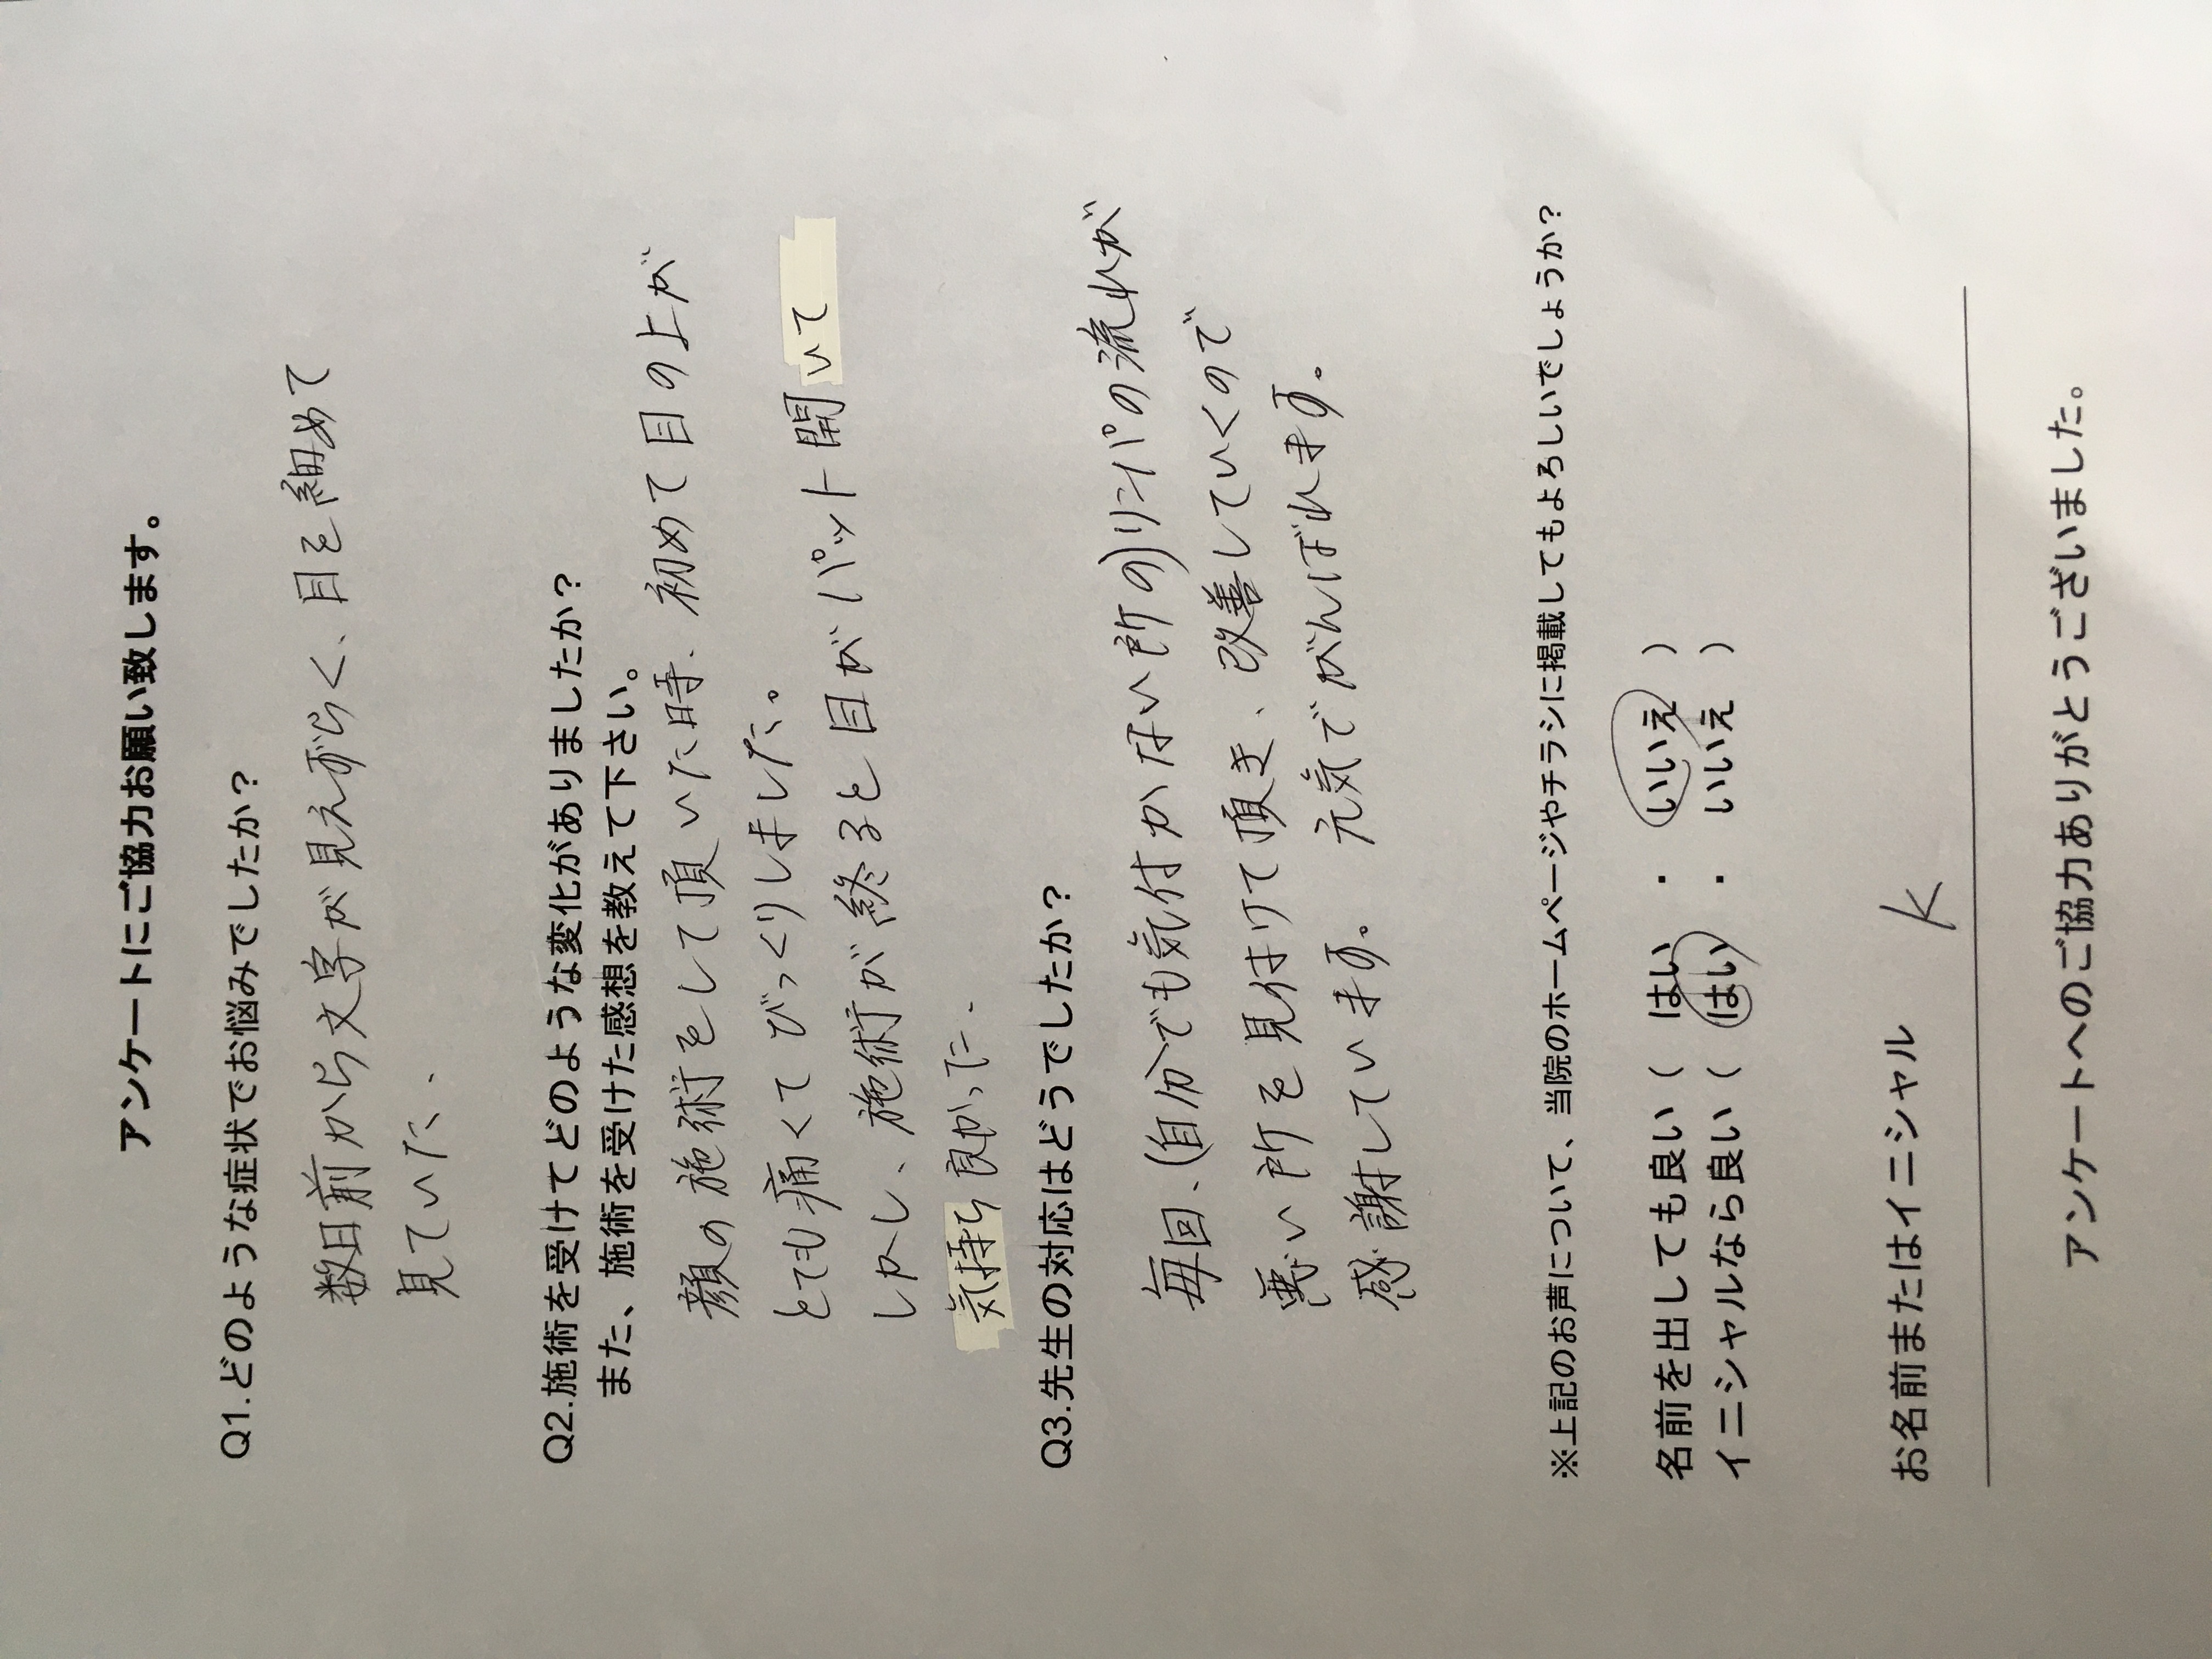 アンケートにご協力お願い致します。
Q1.どのような症状でお悩みでしたか？
数日前から文字が見えずらく、目を細めて
見ていた、
Q2.施術を受けてどのような変化がありましたか？
また、施術を受けた感想を教えて下さい。
顔の施術をして頂いた時、初めて目の上が
とても痛くてびっくりしました。
しかし、施術が終ると目がパット開いて
気持ち良かった、
Q3.先生の対応はどうでしたか？
毎回、(自分でも気付かない所の)リンパの流れが
悪い所を見付けて頂き、改善していくので
感謝しています。元気でがんばれます。
※上記のお声について、当院のホームページやチラシに掲載してもよろしいでしょうか？
名前を出しても良い（ はい ・ いいえ ）
イニシャルなら良い（ はい ・ いいえ ）
お名前またはイニシャル K
アンケートへのご協力ありがとうございました。